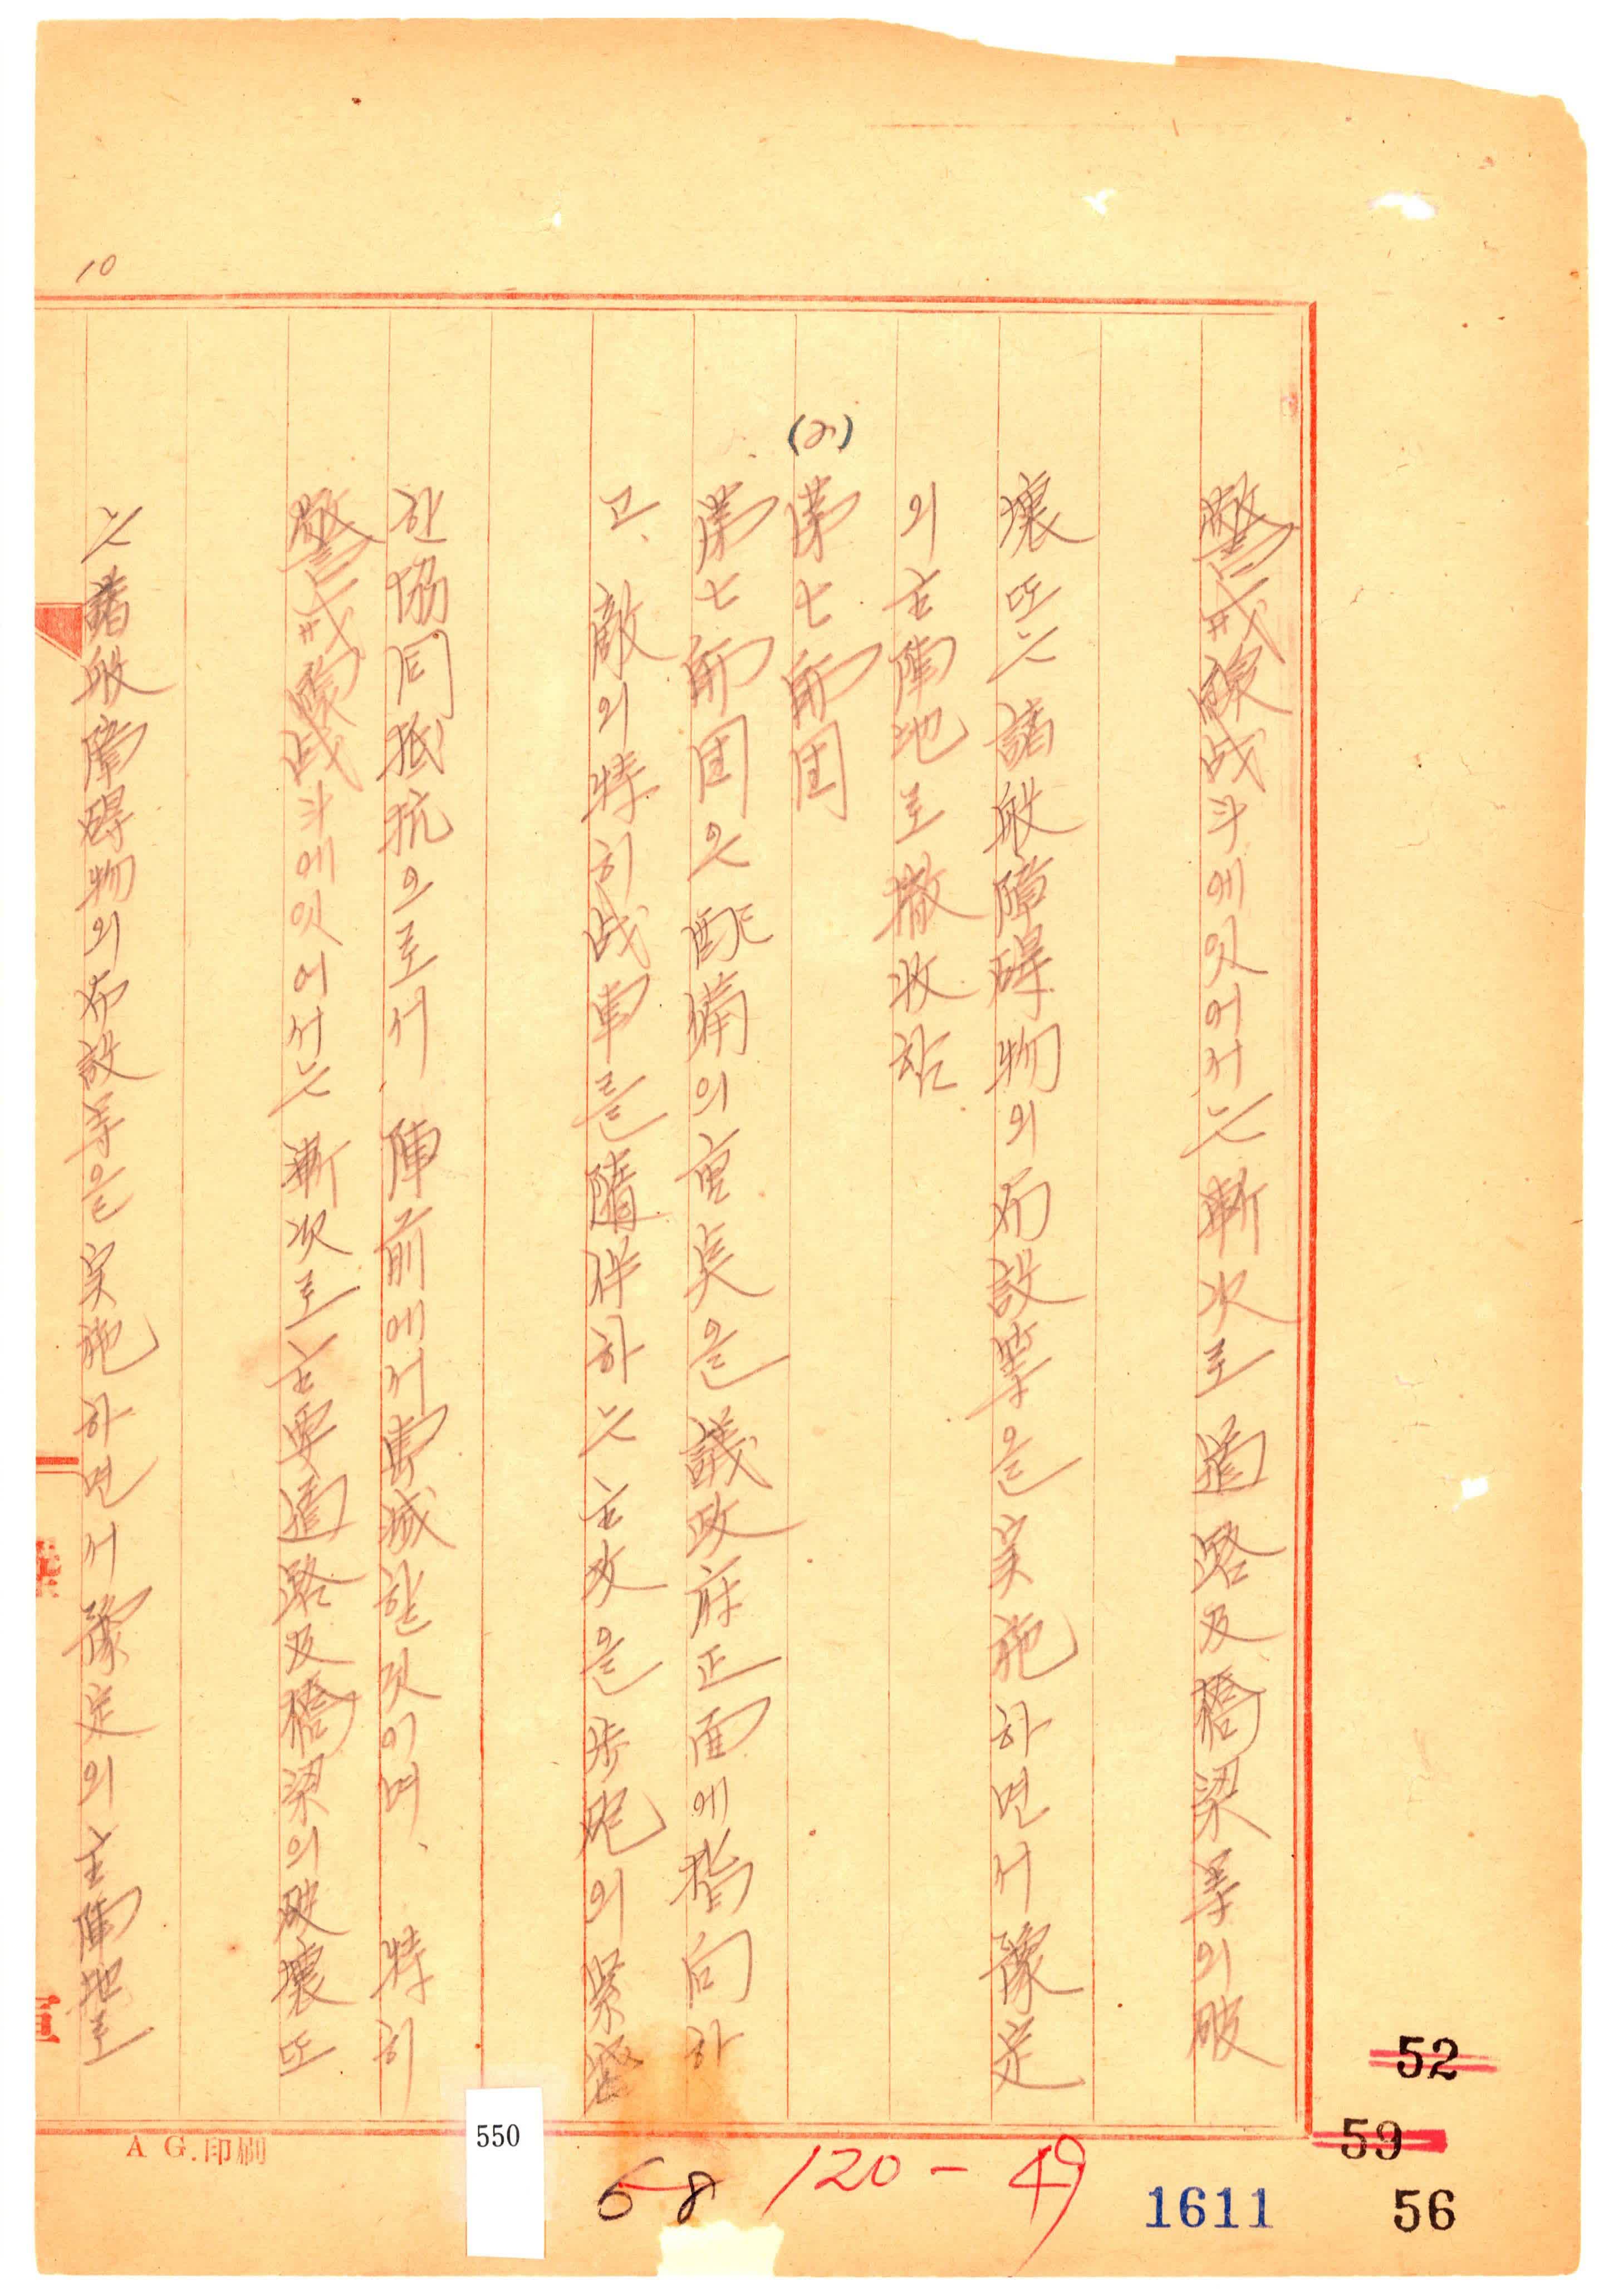 10
警戒陣戦斗에있어서는漸次로 道路及橋梁等의破
壞또는 諸般障碍物의布設等을実施하면서豫定
의主陣地로撤收함.
(2)
第七師団
第七師団은配備의重点을議政府正面에指向하
고、敵의特히战車를隨伴하는主攻을步砲의緊密
한協同抵抗으로서 陣前에서擊滅할것이며、特히
警戒陣战斗에있어서는漸次로主要道路及橋梁의破壞또
는諸般障碍物의布設等을実施하면서豫定의主陣地로
A G.印刷
550
58
120-49
1611
52
59
56